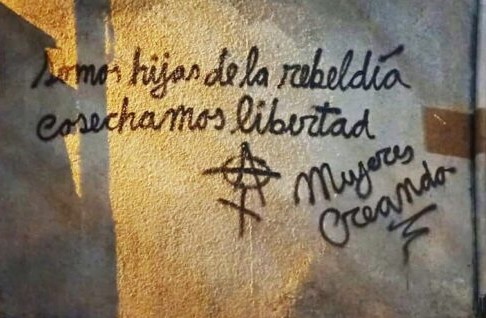 Somos hijas de la rebeldía
cosechamos libertad
Mujeres
Creando